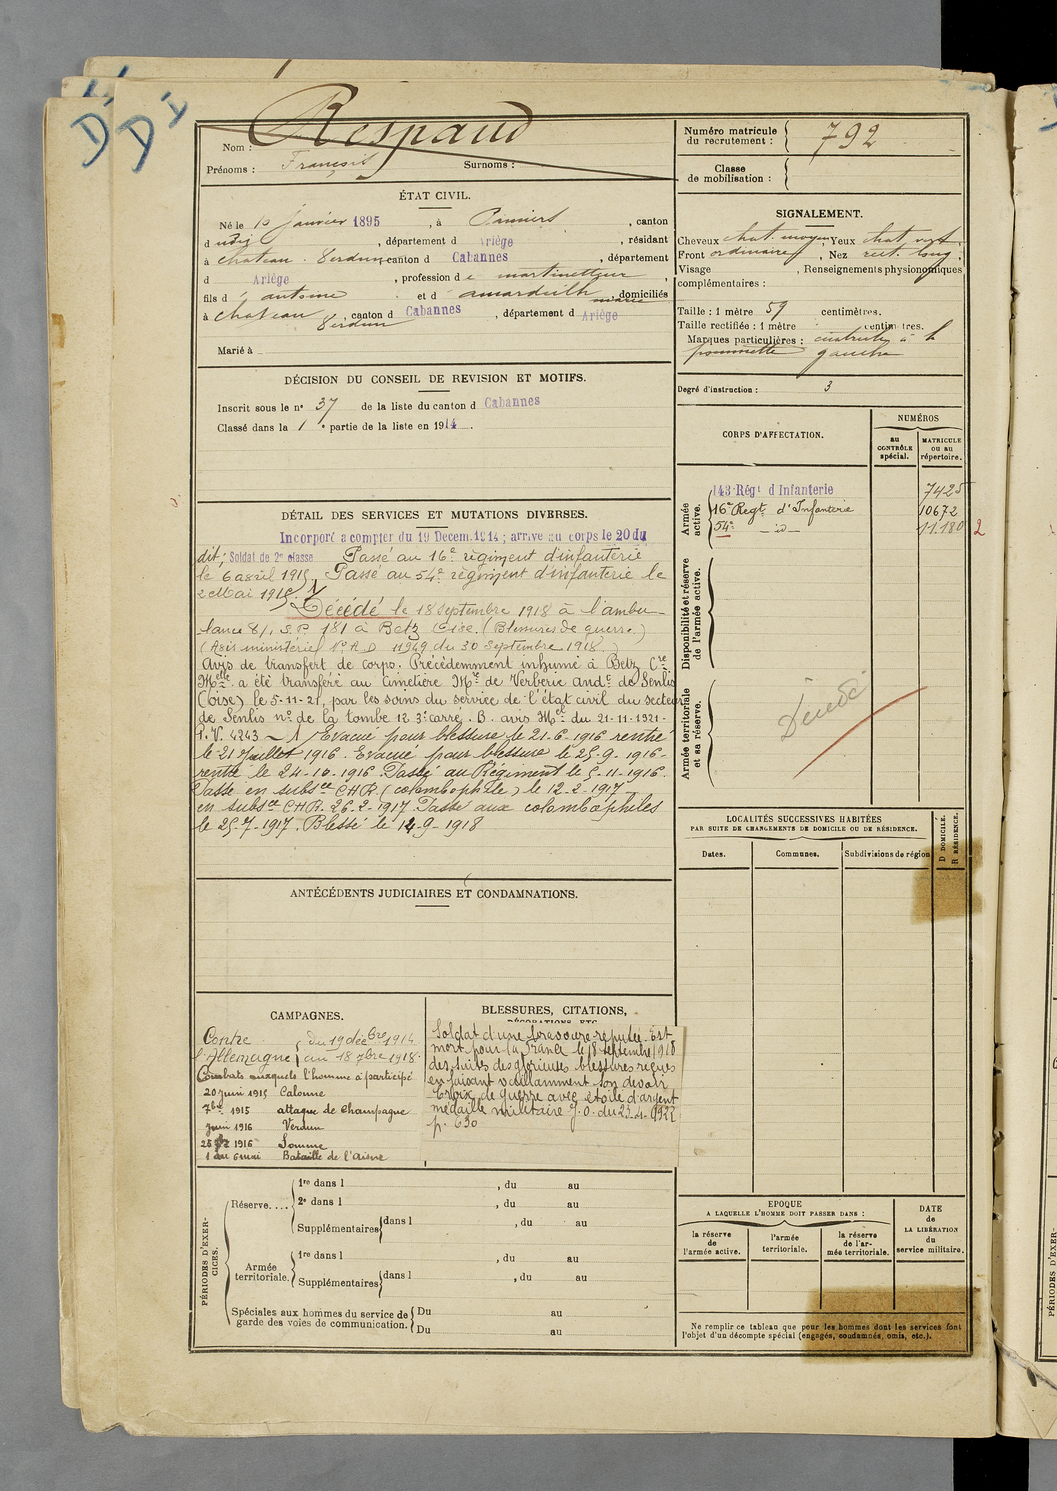 D I
D I
Nom : Respaud
Prénoms : François Surnoms :
Numéro matricule du recrutement : 792
Classe de mobilisation :
ÉTAT CIVIL.
Né le 10 janvier 1895, à Pamiers, canton
d udit, département d Ariège, résidant
à Chateau-Verdun, canton d Cabannes, département
d Ariège, profession d e martinetteur,
fils d' antoine et d' amardeilh marie domiciliés
à Chateau Verdun, canton d Cabannes, département d Ariège
Marié à
DÉCISION DU CONSEIL DE REVISION ET MOTIFS.
Inscrit sous le nº 37 de la liste du canton d Cabannes
Classé dans la 1e partie de la liste en 1914.
DÉTAIL DES SERVICES ET MUTATIONS DIVERSES.
Incorporé a compter du 19 Décem. 1914 ; arrivé au corps le 20 du
dit ; Soldat de 2e classe Passé au 16e régiment d'infanterie
le 6 avril 1915. Passé au 54e régiment d'infanterie le
2 Mai 1915. 1
Décédé le 18 septembre 1918 à l'ambu-
lance 8/1, S.P. 181 à Betz Oise. (Blessures de guerre.)
(Avis ministériel Nº A D 11949 du 30 septembre 1918.)
Avis de transfert de corps. Précédemment inhumé à Betz, Cre
Melle a été transféré au Cimetière Mre de Verberie andc de Senlis
(Oise) le 5-11-21, par les soins du service de l'état civil du secteur
de Senlis nº de la tombe 12 3e carré. B. avis Mel du 21-11-1921-
P.V. 4243 ~ 1 Evacué pour blessure le 21-6-1916 rentré
le 21 Juillet 1916. Evacué pour blessure le 25-9-1916-
rentré le 24-10-1916 Passé au Régiment le 5-11-1916.
Passé en subsce CHR (colombophile) le 12-2-1917
en subsce CHR. 26-2-1917. Passé aux colombophiles
le 25-7-1917. Blessé le 14-9-1918
ANTÉCÉDENTS JUDICIAIRES ET CONDAMNATIONS.
CAMPAGNES.
Contre l'Allemagne du 19 décbre 1914
au 18 7bre 1918.
Combats auxquels l'homme a participé
20 juin 1915 Calonne
7bre 1915 attaque de Champagne
juin 1916 Verdun
1916 Somme
1 au 6 mai Bataille de l'Aisne
BLESSURES, CITATIONS,
DÉCORATIONS, ETC.
Soldat d'une bravoure reputée. Est
mort pour la France le 18 septembre 1918
des suites des glorieuses blessures reçues
en faisant vaillamment son devoir
Croix de guerre avec étoile d'argent
médaille militaire J.O. du 23-4-1922
p. 630
PÉRIODES D'EXERCICES.
Réserve....
1re dans l , du au
2e dans l , du au
Supplémentaires dans l , du au
Armée territoriale.
1re dans l , du au
Supplémentaires dans l , du au
Spéciales aux hommes du service de garde des voies de communication.
Du au
Du au
SIGNALEMENT.
Cheveux chat. moyen, Yeux chat vert.
Front ordinaire, Nez rect. long,
Visage , Renseignements physionomiques
complémentaires :
Taille : 1 mètre 59 centimètres.
Taille rectifiée : 1 mètre centimètres.
Marques particulières : cicatrice à l
pommette gauche
Degré d'instruction : 3
CORPS D'AFFECTATION.
NUMÉROS
au CONTRÔLE spécial.
MATRICULE ou au répertoire.
Armée active.
143e Régt d'Infanterie 7425
16e Regt d'Infanterie 10672
54e _id_ 11.180 2
Disponibilité et réserve de l'armée active.
Armée territoriale et sa réserve.
Décédé
LOCALITÉS SUCCESSIVES HABITÉES
PAR SUITE DE CHANGEMENTS DE DOMICILE OU DE RÉSIDENCE.
D DOMICILE.
R RÉSIDENCE.
Dates. Communes. Subdivisions de région
EPOQUE
A LAQUELLE L'HOMME DOIT PASSER DANS :
la réserve de l'armée active.
l'armée territoriale.
la réserve de l'armée territoriale.
DATE de LA LIBÉRATION du service militaire.
Ne remplir ce tableau que pour les hommes dont les services font
l'objet d'un décompte spécial (engagés, condamnés, omis, etc.).
PÉRIODES D'EXER-